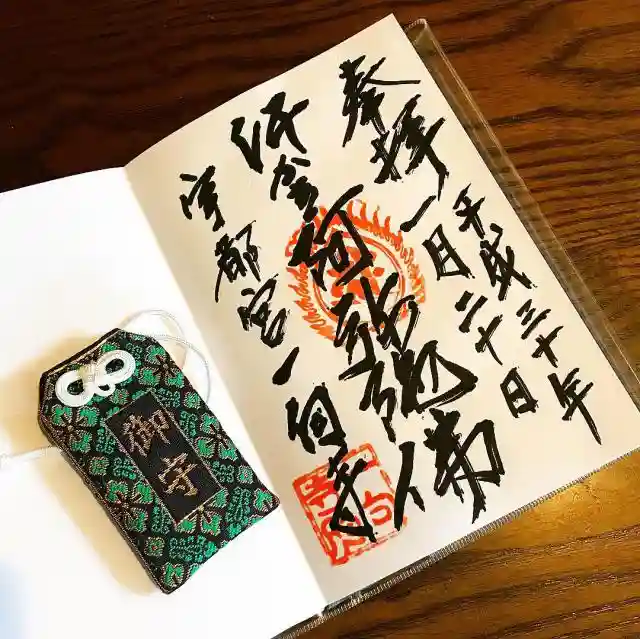 奉拝
平成三十年
一月二十日
阿弥陀佛
宇都宮一向寺
御守